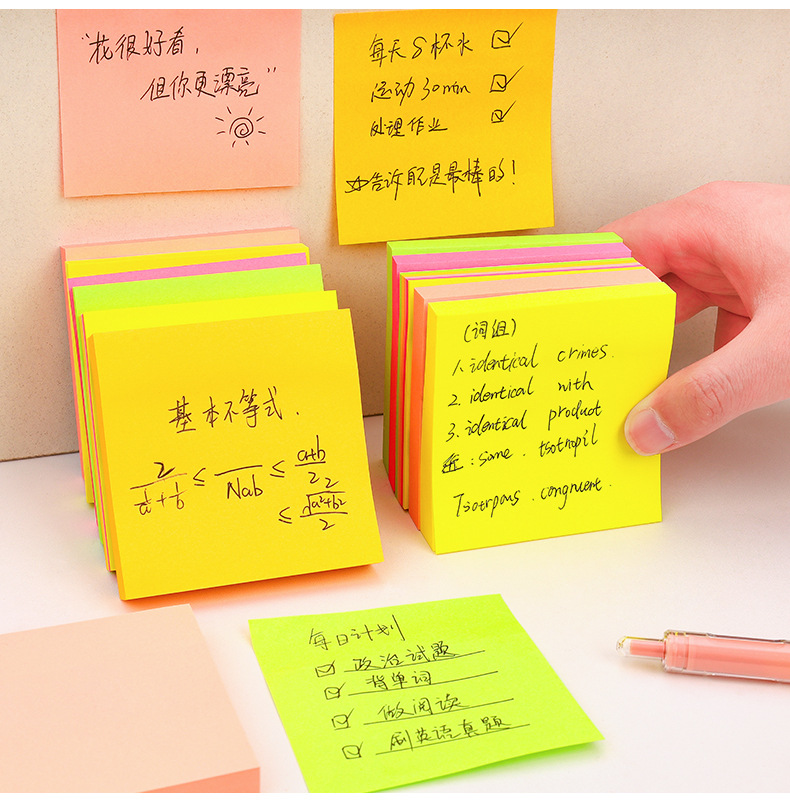 “我很好看，
但你更漂亮”
每天8杯水 ☑
运动30min ☑
处理作业 ☑
☆告诉自己是最棒的！
基本不等式．
2/(1/a+1/b) ≤ ‾Nab ≤ (a+b)/2
≤ √(a²+b²)/2
(词组)
1. identical crimes.
2. identical with
3. identical product
近: same. tsotropil
Tsotrpous. congruent.
每日计划
☑ 政治试题
☑ 背单词
☑ 做阅读
☑ 刷英语真题